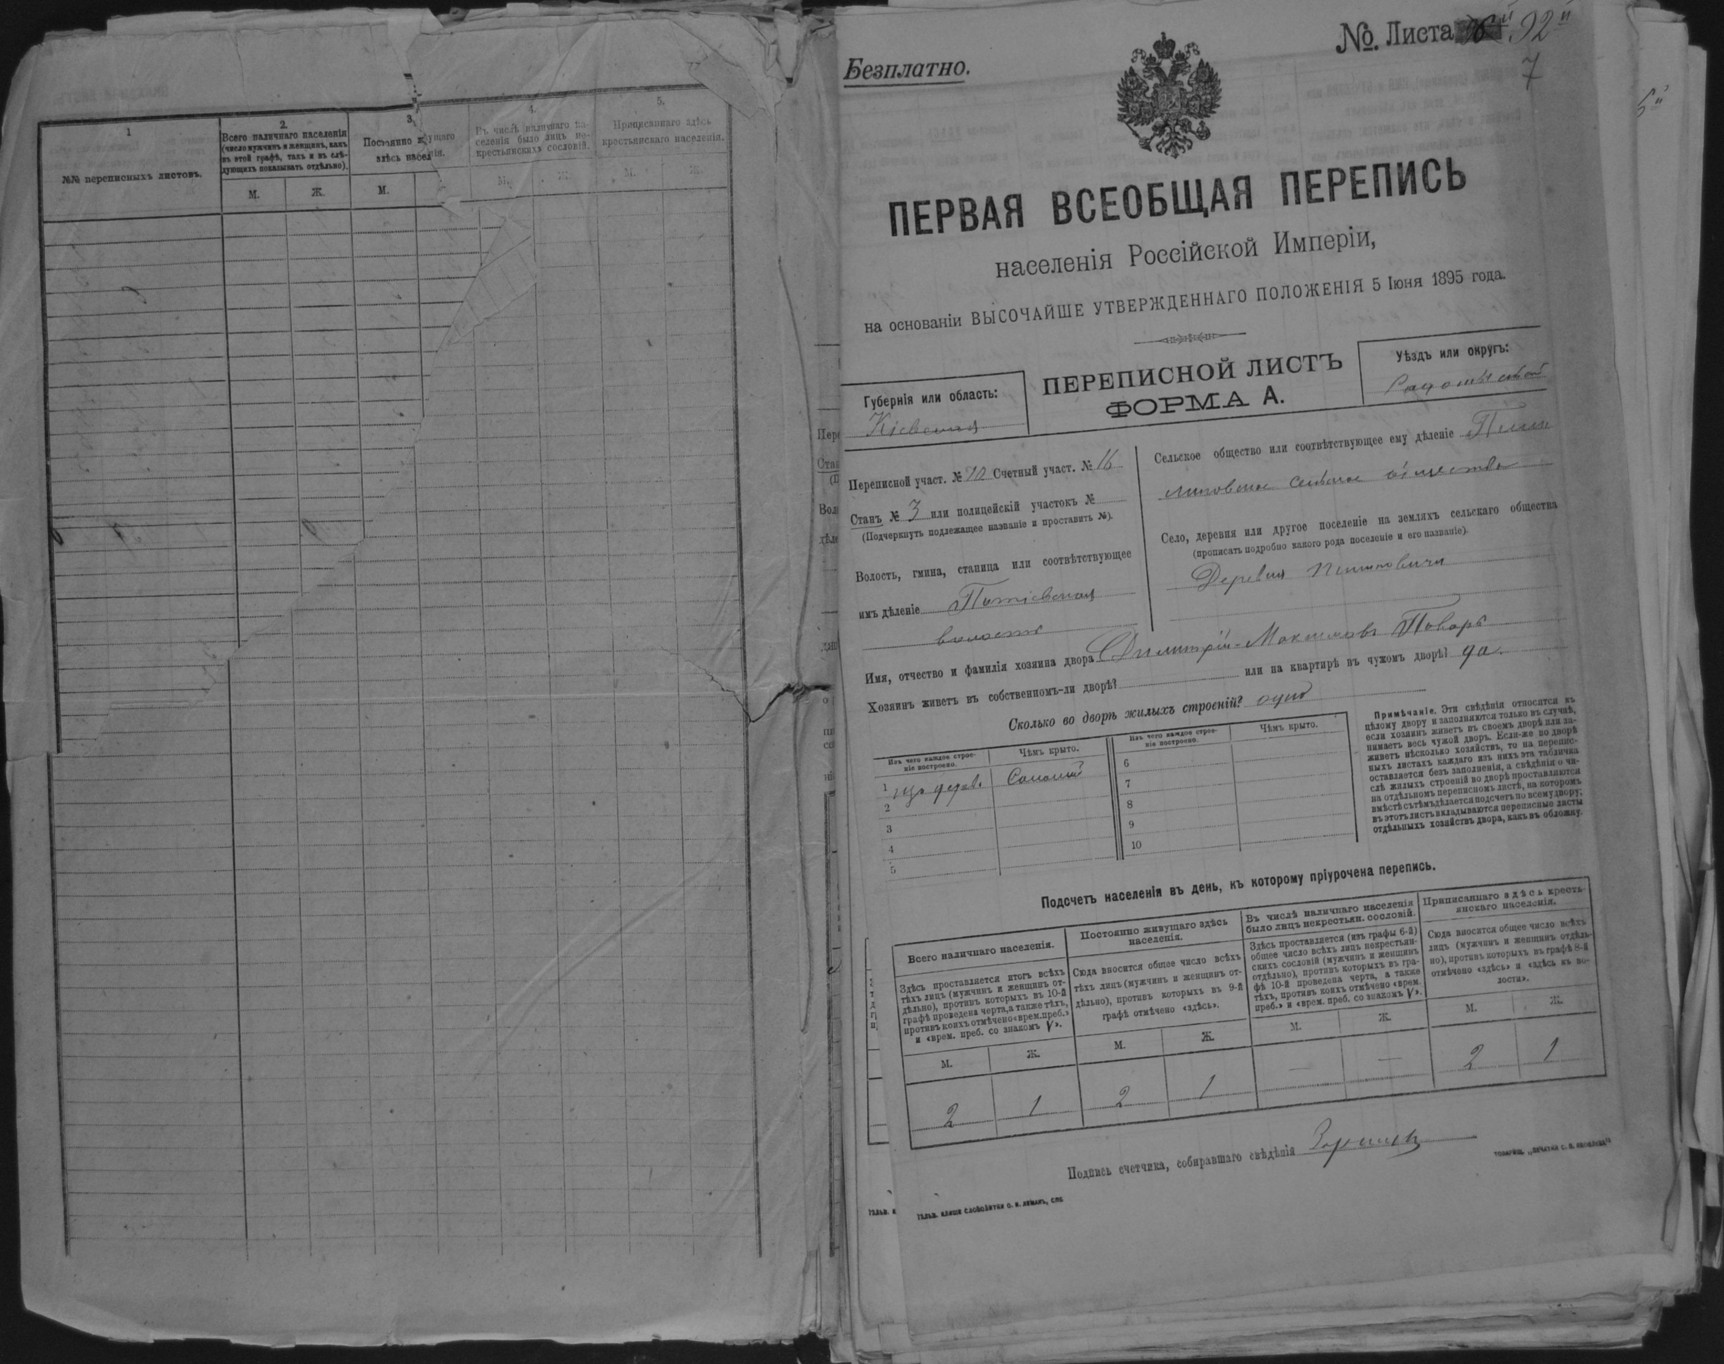 1
№№ переписныхъ листовъ.
2.
Всего наличнаго населенія
(число мужчинъ и женщинъ, какъ
въ этой графѣ, такъ и въ слѣ-
дующихъ показывать отдѣльно).
М. Ж.
3.
Постоянно
здѣсь насел
М.
4.
Въ числѣ наличнаго на-
селенія было лицъ не-
крестьянскихъ сословій.
М. Ж.
5.
Приписаннаго здѣсь
крестьянскаго населенія.
М. Ж.
Безплатно.
№. Листа 92й
7
ПЕРВАЯ ВСЕОБЩАЯ ПЕРЕПИСЬ
населенія Россійской Имперіи,
на основаніи ВЫСОЧАЙШЕ УТВЕРЖДЕННАГО ПОЛОЖЕНІЯ 5 Іюня 1895 года.
Губернія или область:
Кіевская
ПЕРЕПИСНОЙ ЛИСТЪ
ФОРМА А.
Уѣздъ или округъ:
Радомысльскій
Переписной участ. № 12 Счетный участ. № 16
Станъ № 3 или полицейскій участокъ №
(Подчеркнуть подлежащее названіе и проставить №).
Волость, гмина, станица или соотвѣтствующее
имъ дѣленіе Потіевская
волость
Сельское общество или соотвѣтствующее ему дѣленіе
сельское общество
Село, деревня или другое поселеніе на земляхъ сельскаго общества
(прописать подробно какого рода поселеніе и его названіе).
Деревня
Имя, отчество и фамилія хозяина двора Димитрій Максимовъ Поваръ
Хозяинъ живетъ въ собственномъ-ли дворѣ? или на квартирѣ въ чужомъ дворѣ? да.
Сколько во дворѣ жилыхъ строеній? одно
Изъ чего каждое строе-
ніе построено.
Чѣмъ крыто.
Изъ чего каждое строе-
ніе построено.
Чѣмъ крыто.
1 изъ дерева Соломой
2
3
4
5
6
7
8
9
10
Примѣчаніе. Эти свѣдѣнія относятся къ
цѣлому двору и заполняются только въ случаѣ,
если хозяинъ живетъ въ своемъ дворѣ или за-
нимаетъ весь чужой дворъ. Если-же во дворѣ
живетъ нѣсколько хозяйствъ, то на перепис-
ныхъ листахъ каждаго изъ нихъ эта табличка
оставляется безъ заполненія, а свѣдѣнія о чи-
слѣ жилыхъ строеній во дворѣ проставляются
на отдѣльномъ переписномъ листѣ, на которомъ
вмѣстѣ съ тѣмъ дѣлается подсчетъ по всему двору;
въ этотъ листъ вкладываются переписные листы
отдѣльныхъ хозяйствъ двора, какъ въ обложку.
Подсчетъ населенія въ день, къ которому пріурочена перепись.
Всего наличнаго населенія.
Здѣсь проставляется итогъ всѣхъ
тѣхъ лицъ (мужчинъ и женщинъ от-
дѣльно), противъ которыхъ въ 10-й
графѣ проведена черта, а также тѣхъ,
противъ коихъ отмѣчено «врем. преб.»
и «врем. преб. со знакомъ V».
М. Ж.
2 1
Постоянно живущаго здѣсь
населенія.
Сюда вносится общее число всѣхъ
тѣхъ лицъ (мужчинъ и женщинъ от-
дѣльно), противъ которыхъ въ 9-й
графѣ отмѣчено «здѣсь».
М. Ж.
2 1
Въ числѣ наличнаго населенія
было лицъ некрестьян. сословій.
Здѣсь проставляется (изъ графы 6-й)
общее число всѣхъ лицъ некрестьян-
скихъ сословій (мужчинъ и женщинъ
отдѣльно), противъ которыхъ въ гра-
фѣ 10-й проведена черта, а также
тѣхъ, противъ коихъ отмѣчено «врем.
преб.» и «врем. преб. со знакомъ V».
М. Ж.
— —
Приписаннаго здѣсь кресть-
янскаго населенія.
Сюда вносится общее число всѣхъ
лицъ (мужчинъ и женщинъ отдѣль-
но), противъ которыхъ въ графѣ 8-й
отмѣчено «здѣсь» и «здѣсь въ во-
лости».
М. Ж.
2 1
Подпись счетчика, собиравшаго свѣдѣнія